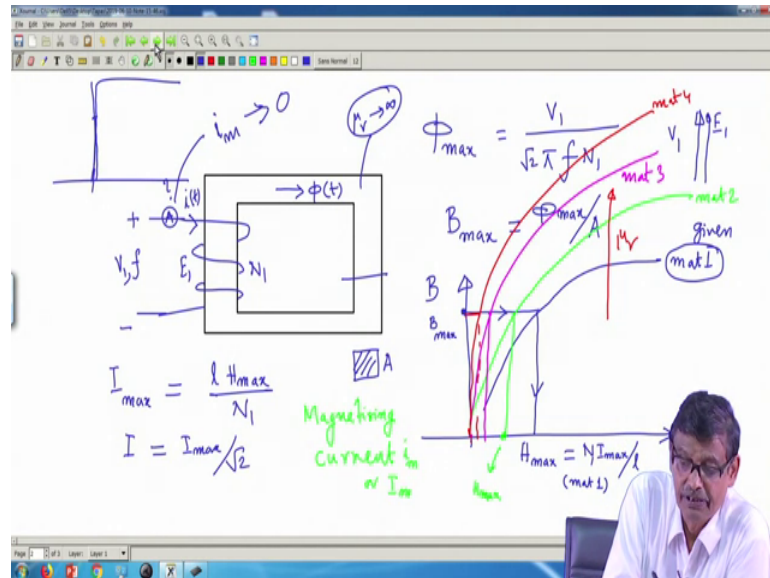 Xournal - C:\Users\Dell\Desktop\
File Edit View Journal Tools Options Help
Sans Normal 12
i_m → 0
μ_r → ∞
i
A
i(t)
→ φ(t)
+
V_1, f
E_1
N_1
-
A
I_max = l H_max / N_1
I = I_max/√2
Magnetizing
current i_m
or I_m
Φ_max = V_1 / √2 π f N_1
B_max = Φ_max / A
V_1
E_1
mat 4
mat 3
mat 2
given
mat 1
μ_r
B
B_max
H_max
H_max = N I_max/l
(mat 1)
Page 2 of 3 Layer: Layer 1